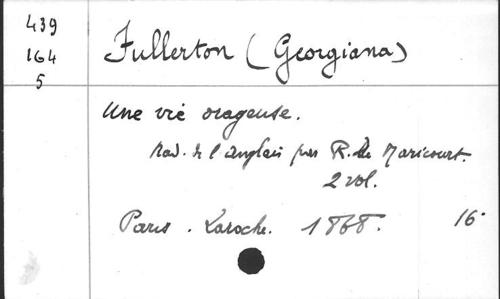 439
164
5
Fullerton (Georgiana)
Une vie orageuse.
trad. de l'anglais par R. de Maricourt.
2 vol.
Paris. Laroche. 1868. 16°